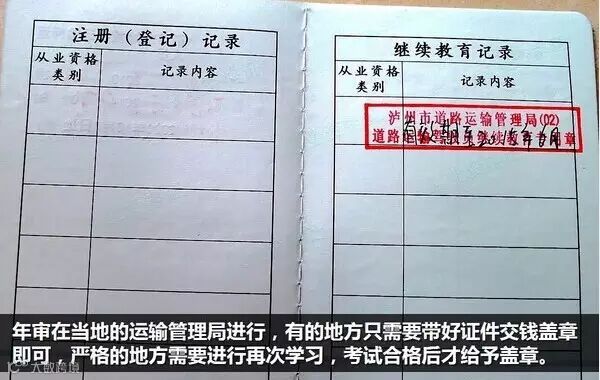 注册（登记）记录
从业资格
类别
记录内容
继续教育记录
从业资格
类别
记录内容
泸州市道路运输管理局(02)
道路运输驾驶员继续教育专用章
有效期至2015年9月
年审在当地的运输管理局进行，有的地方只需要带好证件交钱盖章
即可，严格的地方需要进行再次学习，考试合格后才给予盖章。
大数跨境